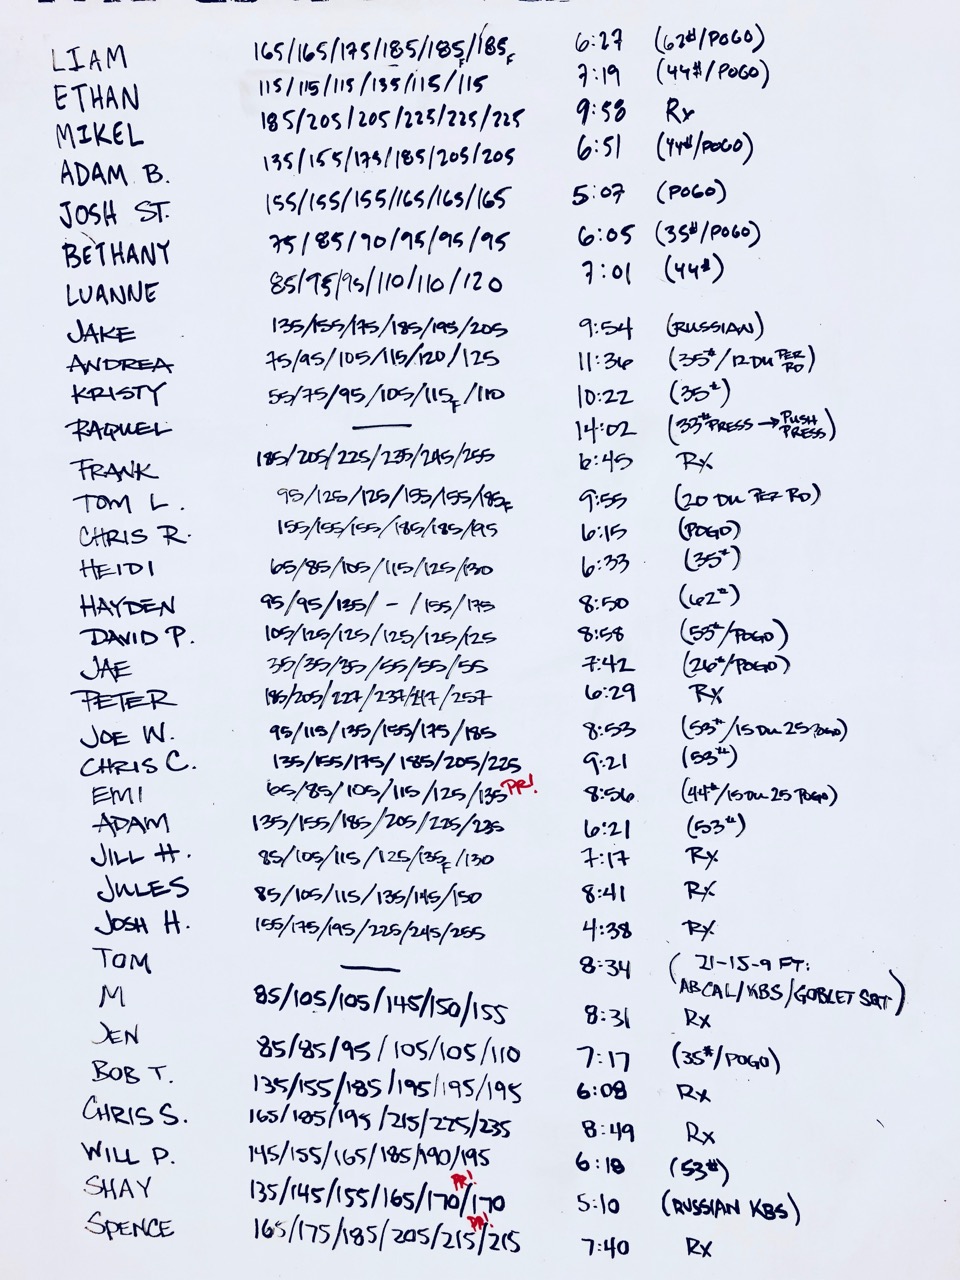 LIAM 165/165/175/185/185F/185F 6:27 (62#/POGO)
ETHAN 115/115/115/135/115/115 7:19 (44#/POGO)
MIKEL 185/205/205/225/225/225 9:58 Rx
ADAM B. 135/155/175/185/205/205 6:51 (44#/POGO)
JOSH ST. 155/155/155/165/165/165 5:07 (POGO)
BETHANY 75/85/90/95/95/95 6:05 (35#/POGO)
LUANNE 85/95/95/110/110/120 7:01 (44#)
JAKE 135/155/175/185/195/205 9:54 (RUSSIAN)
ANDREA 75/95/105/115/120/125 11:36 (35#/12 DU PER RD)
KRISTY 55/75/95/105/115F/110 10:22 (35#)
RAQUEL — 14:02 (33# PRESS → PUSH PRESS)
FRANK 185/205/225/235/245/255 6:45 Rx
TOM L. 95/125/125/155/155/185F 9:55 (20 DU PER RD)
CHRIS R. 155/155/155/185/185/195 6:15 (POGO)
HEIDI 65/85/105/115/125/130 6:33 (35#)
HAYDEN 95/95/135/ - /155/175 8:50 (62#)
DAVID P. 105/125/125/125/125/125 8:58 (53#/POGO)
JAE 35/35/35/55/55/55 7:42 (26#/POGO)
PETER 185/205/227/237/247/257 6:29 Rx
JOE W. 95/115/135/155/175/185 8:53 (53#/15 DU 25 POGO)
CHRIS C. 135/155/175/185/205/225 9:21 (53#)
EMI 65/85/105/115/125/135 PR! 8:56 (44#/15 DU 25 POGO)
ADAM 135/155/185/205/225/235 6:21 (53#)
JILL H. 85/105/115/125/135F/130 7:17 Rx
JULES 85/105/115/135/145/150 8:41 Rx
JOSH H. 155/175/195/225/245/255 4:38 Rx
TOM — 8:34 (21-15-9 FT:
AB CAL/KBS/GOBLET SQT)
M 85/105/105/145/150/155 8:31 Rx
JEN 85/85/95/105/105/110 7:17 (35#/POGO)
BOB T. 135/155/185/195/195/195 6:08 Rx
CHRIS S. 165/185/195/215/225/235 8:49 Rx
WILL P. 145/155/165/185/190/195 6:18 (53#)
SHAY 135/145/155/165/170/170 PR! 5:10 (RUSSIAN KBS)
SPENCE 165/175/185/205/215/215 PR! 7:40 Rx